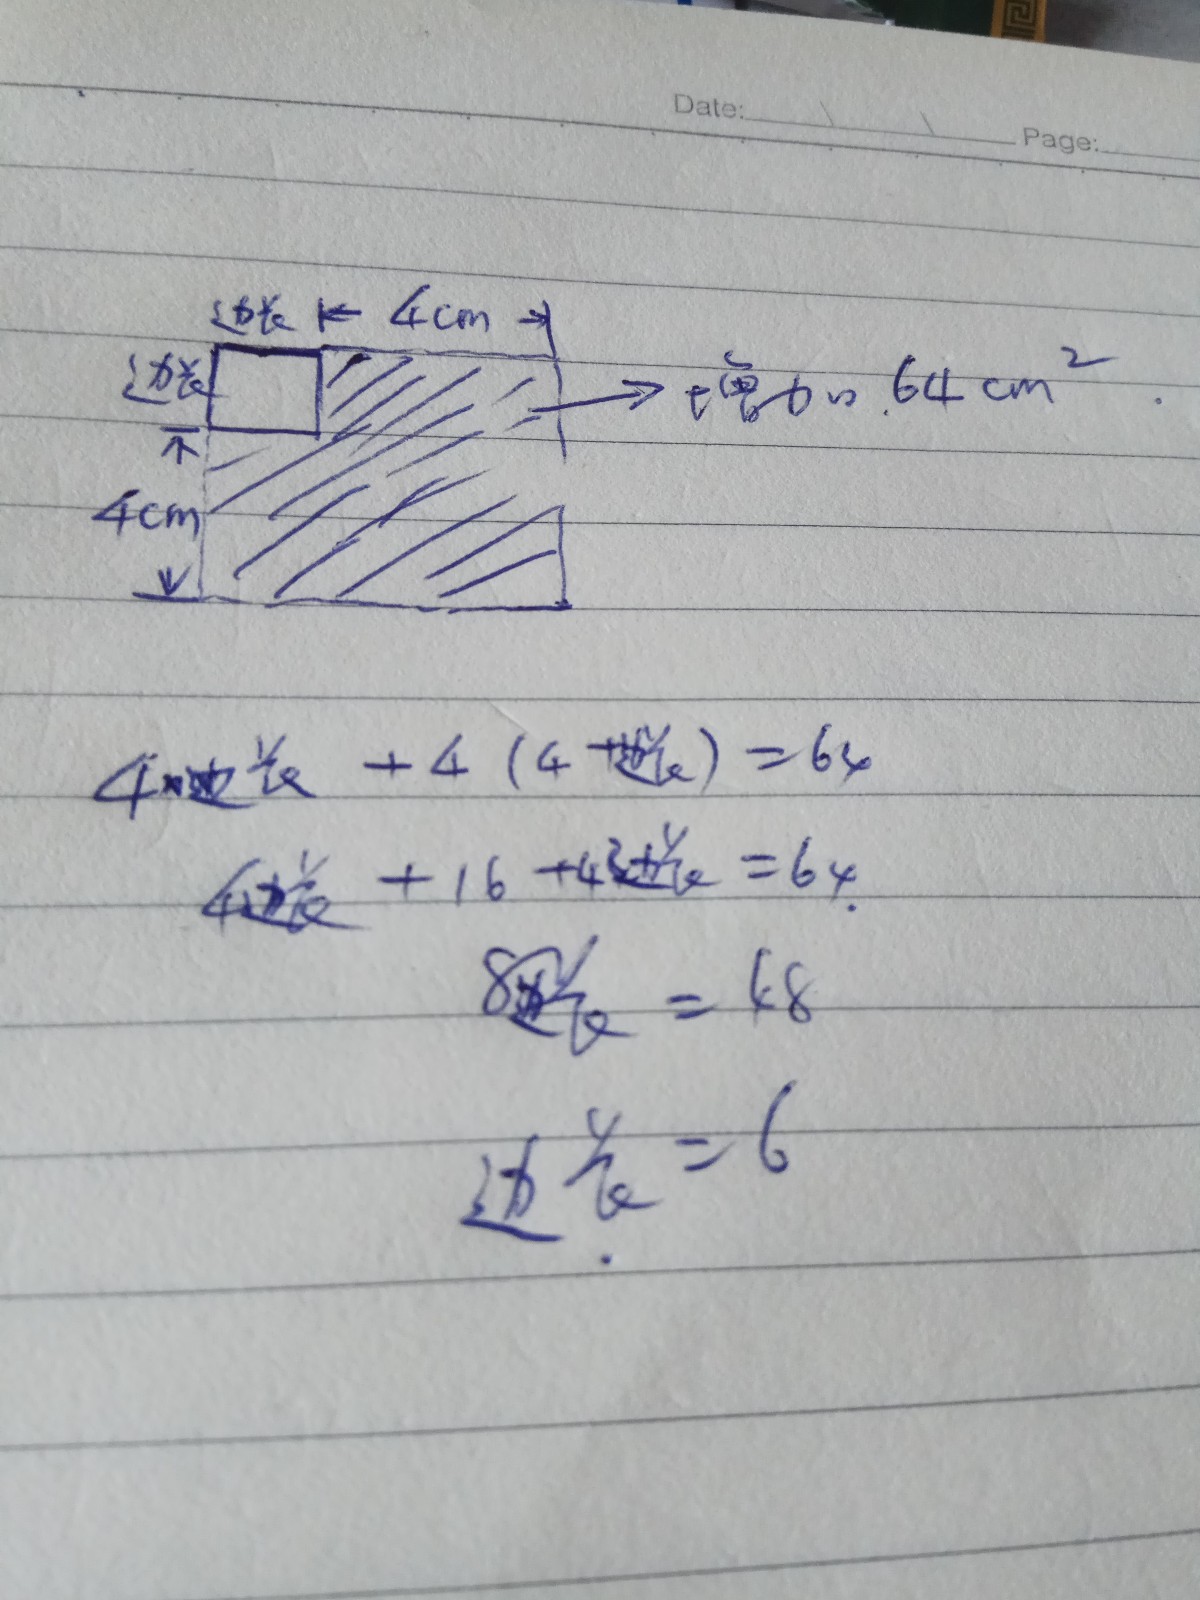 Date:
Page:
边长 4cm
边长
增加 64cm²
4cm
4·边长 + 4 (4+边长) = 64
4边长 + 16 + 4边长 = 64
8边长 = 48
边长 = 6